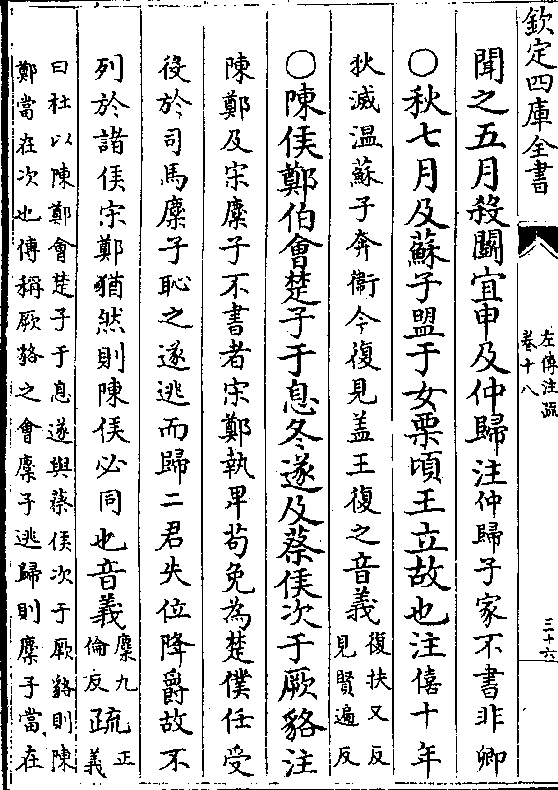 欽定四庫全書
左傳注疏
卷十八
三十六
聞之五月殺鬬宜申及仲歸注仲歸子家不書非卿
○秋七月及蘇子盟于女栗頃王立故也注僖十年
狄滅溫蘇子奔衞今復見盖王復之音義復扶又反
見賢遍反
○陳侯鄭伯會楚子于息冬遂及蔡侯次于厥貉注
陳鄭及宋麇子不書者宋鄭執卑苟免為楚僕任受
役於司馬麇子恥之遂逃而歸二君失位降爵故不
列於諸侯宋鄭猶然則陳侯必同也音義麇九
倫反疏正
義
曰杜以陳鄭會楚子于息遂與蔡侯次于厥貉則陳
鄭當在次也傳稱厥貉之會麇子逃歸則麇子當在